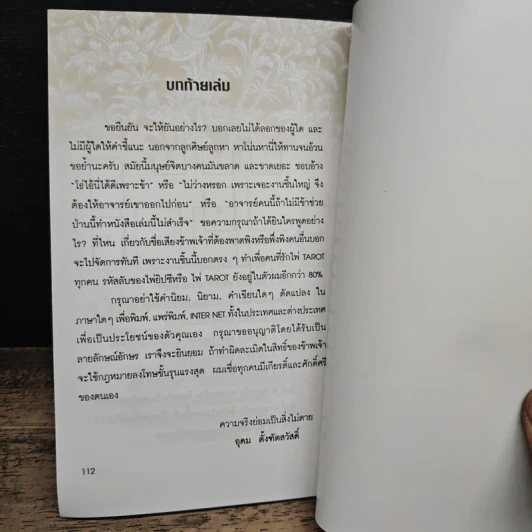 บทท้ายเล่ม
ขอยืนยัน จะให้ยันอย่างไร? บอกเลยไม่ได้ลอกของผู้ใด และ
ไม่มีผู้ใดให้คำชี้แนะ นอกจากลูกศิษย์ลูกหา หาโน่นหานี่ให้ทานจนอ้วน
ขอย้ำนะครับ สมัยนี้มนุษย์จิตบางคนมันขลาด และขาดเยอะ ชอบอ้าง
"ไอ้ไอ้นี่ได้ดีเพราะข้า" หรือ "ไม่ว่างหรอก เพราะเจอะงานชิ้นใหญ่ จึง
ต้องให้อาจารย์เขาออกไปก่อน" หรือ "อาจารย์คนนี้ถ้าไม่มีข้าช่วย
ป่านนี้ทำหนังสือเล่มนี้ไม่สำเร็จ" ขอความกรุณาถ้าได้ยินใครพูดอย่าง
ไร? ที่ไหน เกี่ยวกับชื่อเสียงข้าพเจ้าที่ต้องพาดพิงหรือพึ่งพิงคนอื่นบอก
จะไปจัดการทันที เพราะงานชิ้นนี้บอกตรง ๆ ทำเพื่อคนที่รักไพ่ TAROT
ทุกคน รหัสลับของไพ่ยิปซีหรือ ไพ่ TAROT ยังอยู่ในตัวผมอีกกว่า 80%
กรุณาอย่าใช้คำนิยม, นิยาม, คำเขียนใดๆ ดัดแปลง ใน
ภาษาใดๆ เพื่อพิมพ์, แพร่พิมพ์, INTER NET ทั้งในประเทศและต่างประเทศ
เพื่อเป็นประโยชน์ของตัวคุณเอง กรุณาขออนุญาติโดยได้รับเป็น
ลายลักษณ์อักษร เราจึงจะยินยอม ถ้าทำผิดละเมิดในสิทธิ์ของข้าพเจ้า
จะใช้กฎหมายลงโทษขั้นรุนแรงสุด ผมเชื่อทุกคนมีเกียรติ์และศักดิ์ศรี
ของตนเอง
ความจริงย่อมเป็นสิ่งไม่ตาย
อุดม ตั้งทัตสวัสดิ์
112